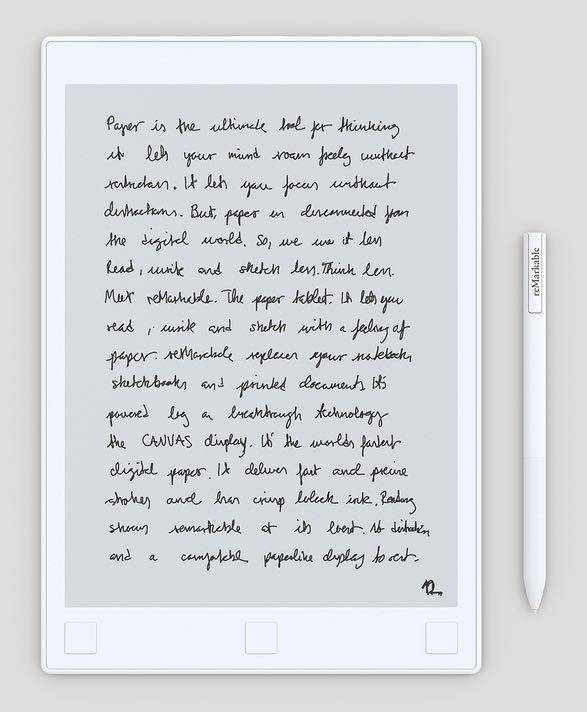 Paper is the ultimate tool for thinking
it lets your mind roam freely without
restrictions. It lets you focus without
distractions. But, paper is disconnected from
the digital world. So, we use it less
Read, write and sketch less. Think less.
Meet reMarkable. The paper tablet. It lets you
read, write and sketch with a feeling of
paper. reMarkable replaces your notebooks,
sketchbooks and printed documents. It's
powered by a breakthrough technology
the CANVAS display. It's the worlds fastest
digital paper. It delivers fast and precise
strokes and has crisp black ink. Reading
shows remarkable at its best. No distraction
and a comfortable paperlike display to rest.
reMarkable